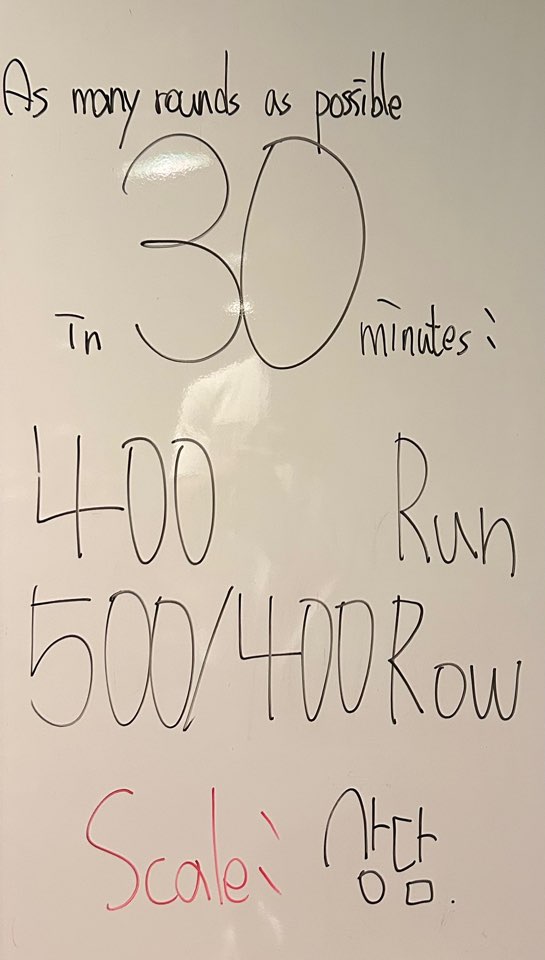 As many rounds as possible
in 30 minutes:
400 Run
500/400 Row
Scale: 상담.